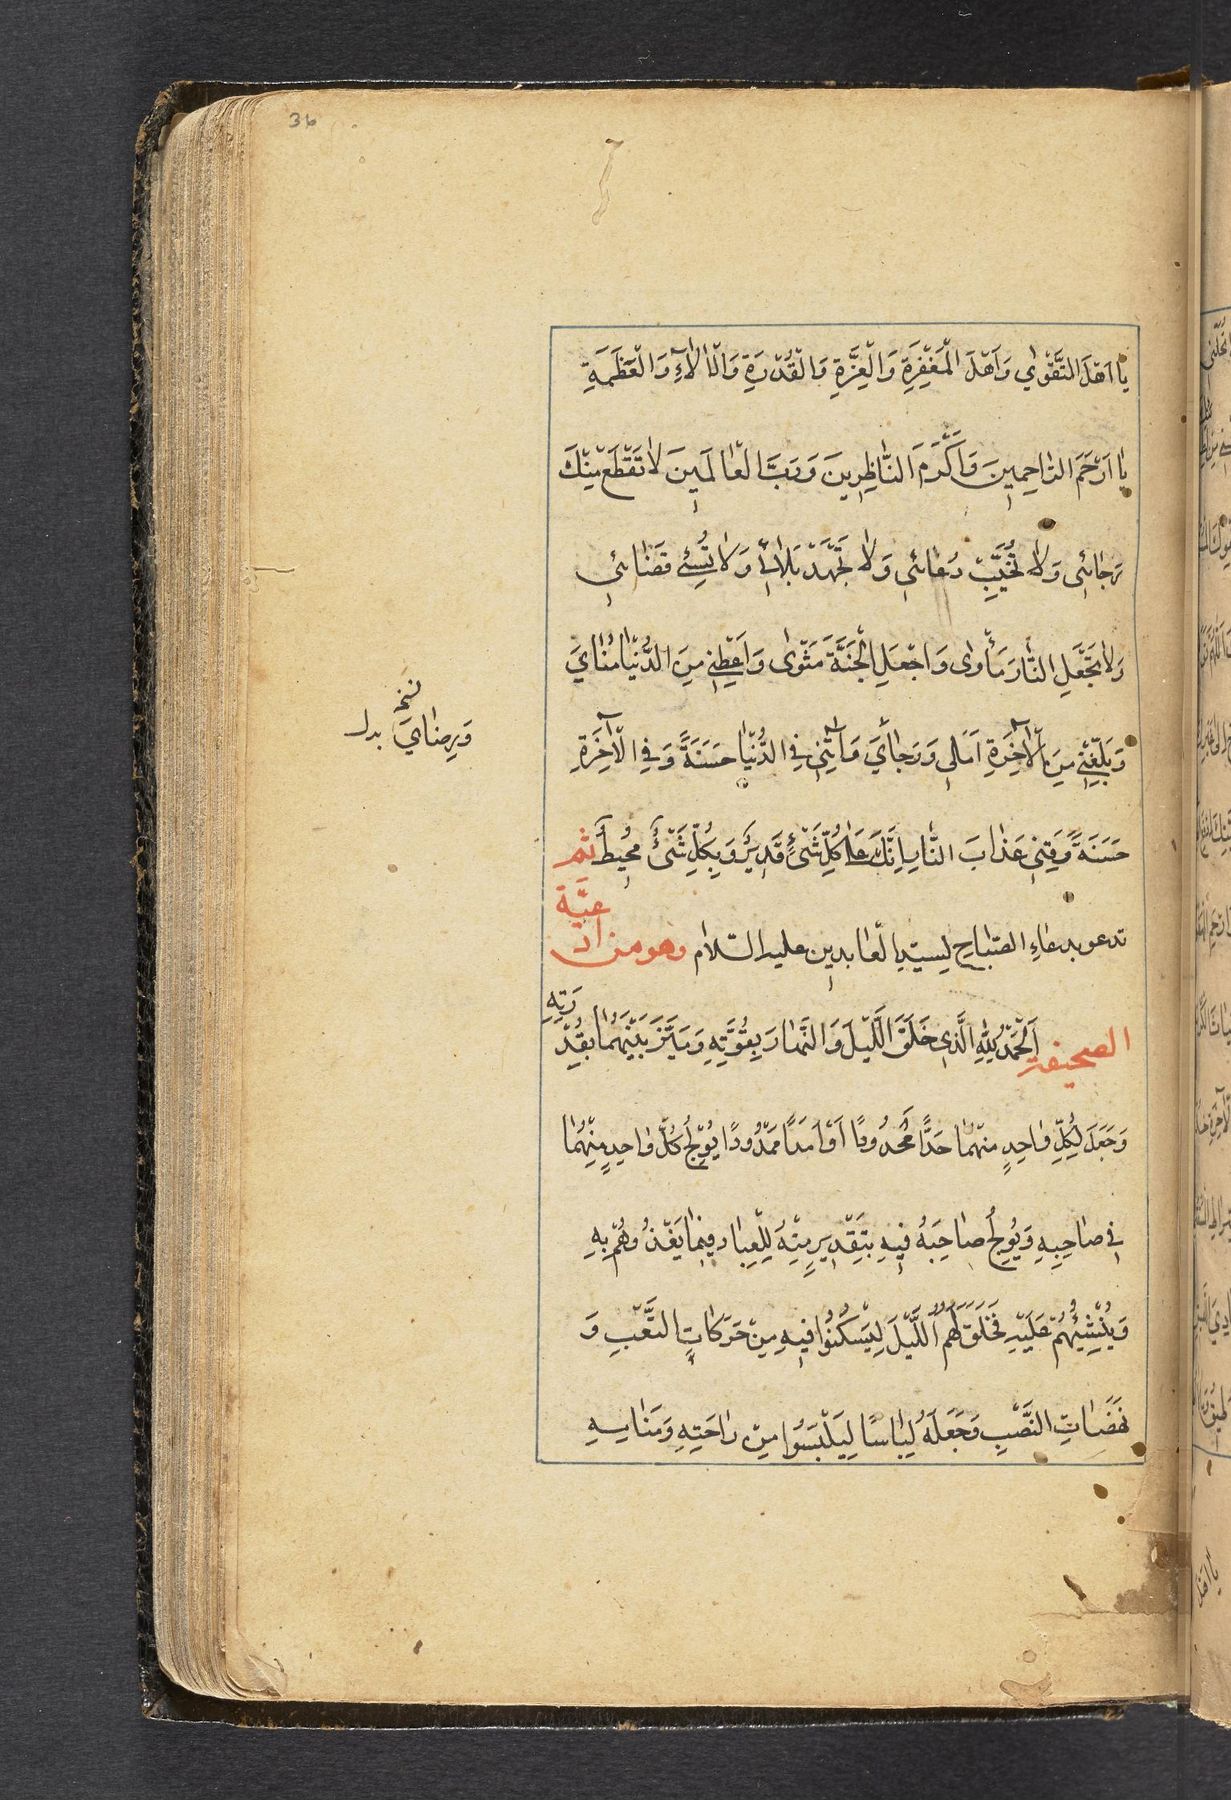 36
يا اَهْلَ التَّقْوٰي وَاَهْلَ الْمَغْفِرَةِ وَالْعِزَّةِ وَالْقُدْرَةِ وَالْاٰلاٰءِ وَالْعَظَمَةِ
يٰا اَرْحَمَ الرّٰاحِمينَ وَاَكْرَمَ النّٰاظِرينَ وَرَبَّ الْعٰالَمينَ لاٰ تَقْطَعْ مِنْكَ
رَجٰائي وَلاٰ تُخَيِّبْ دُعٰائي وَلاٰ تَجْهَدْ بَلاٰئي وَلاٰ تُسِئْ قَضٰائي
وَلاٰ تَجْعَلِ النّٰارَ مَأْوٰى وَاجْعَلِ الْجَنَّةَ مَثْوٰى وَاَعْطِني مِنَ الدُّنْيٰا مُنٰايَ
وَبَلِّغْني مِنَ الْآخِرَةِ اَمَلي وَرَجٰائيَ وَآتِني فِي الدُّنْيٰا حَسَنَةً وَفِي الْآخِرَةِ
حَسَنَةً وَقِني عَذٰابَ النّٰارِ اِنَّكَ عَلٰى كُلِّ شَيْءٍ قَديرٌ وَبِكُلِّ شَيْءٍ مُحيطٌ ثم
تدعو بدعاءِ الصّباحِ لِسيّدِ العٰابدين عليه السّلام وهو من ادعيّة
الصحيفة اَلْحَمْدُ لِلّٰهِ الَّذي خَلَقَ اللَّيْلَ وَالنَّهٰارَ بِقُوَّتِهِ وَمَيَّزَ بَيْنَهُمٰا بِقُدْرَتِهِ
وَجَعَلَ لِكُلِّ وٰاحِدٍ مِنْهُمٰا حَدًّا مَحْدُودًا اَوْ اَمَدًا مَمْدُودًا يُوْلِجُ كُلَّ وٰاحِدٍ مِنْهُمٰا
في صٰاحِبِهِ وَيُولِجُ صٰاحِبَهُ فيهِ بِتَقْديرٍ مِنْهُ لِلْعِبٰادِ فيمٰا يَغْذُوهُمْ بِهِ
وَيُنْشِئُهُمْ عَلَيْهِ فَخَلَقَ لَهُمُ اللَّيْلَ لِيَسْكُنُوا فيهِ مِنْ حَرَكٰاتِ التَّعَبِ وَ
نَهَضٰاتِ النَّصَبِ وَجَعَلَهُ لِبٰاسًا لِيَلْبَسُوا مِنْ رٰاحَتِهِ وَمَنٰامِهِ
وَرِضٰايَ بدل نسخه